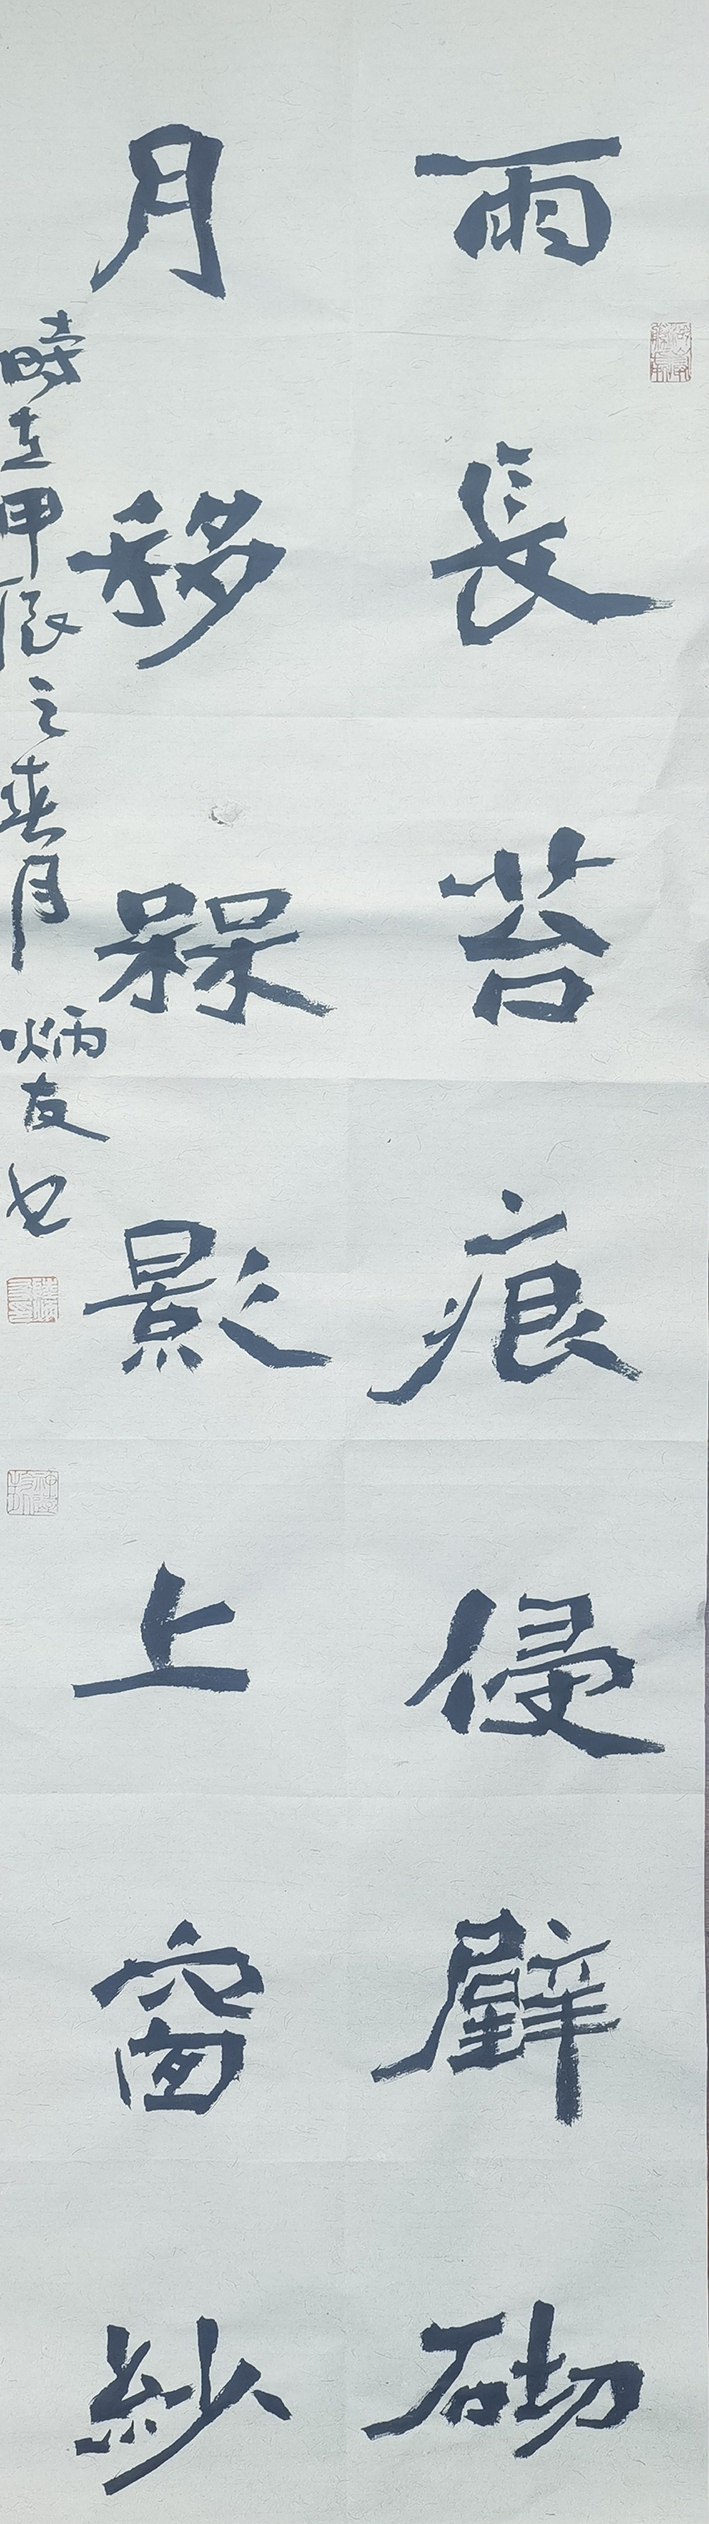 雨長苔痕侵壁砌
月移槑影上窗紗
時在甲辰之春月 炳友书